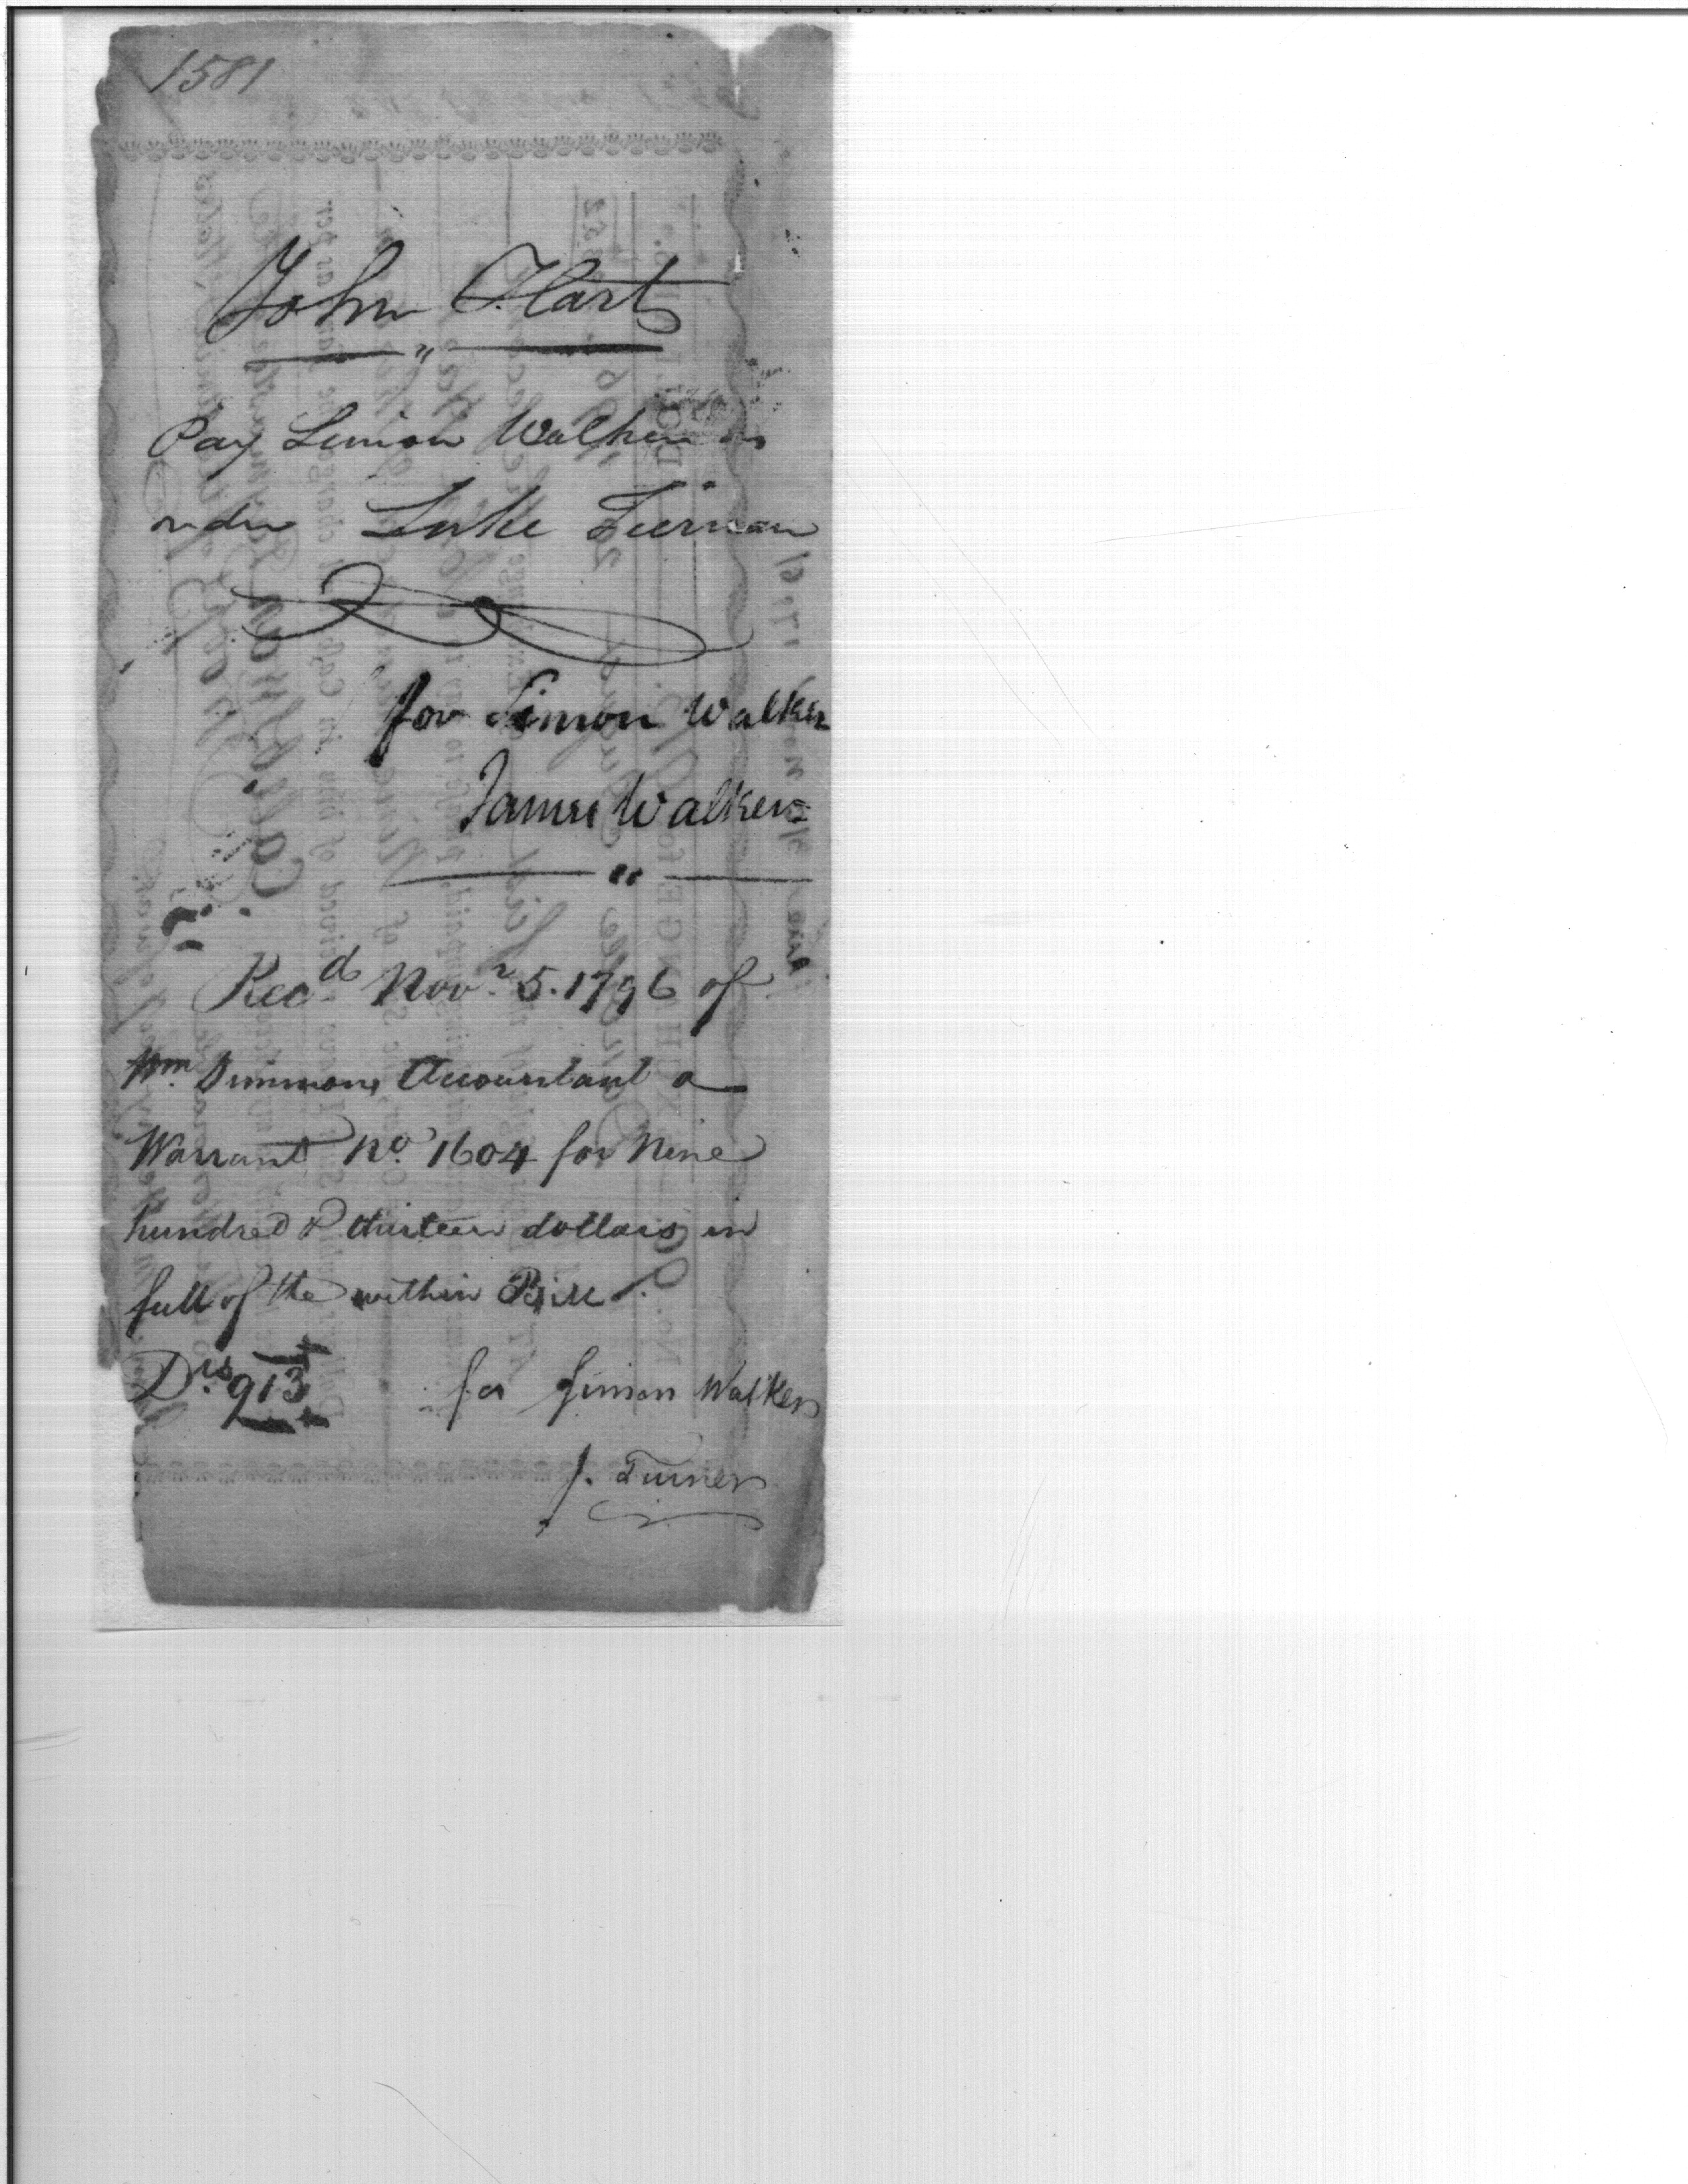 1581
John Hart
Pay Simon Walker or
order Luke Tiernan
for Simon Walker
James Walker
Recd Novr 5. 1796 of
Wm. Simmons Accountant a
Warrant No. 1604 for Nine
hundred & thirteen dollars in
full of the within Bill.
Drs. 913 for Simon Walker
J. Turner